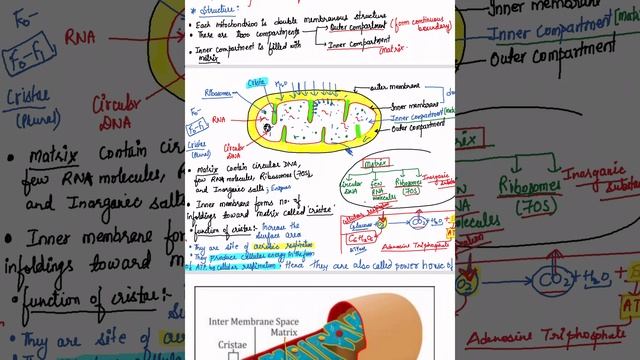 * Structure :
• Each mitochondrion is double membranous structure
• There are two compartments → Outer compartment (form continuous boundary)
Inner compartment (matrix)
• Inner compartment is filled with matrix
Cristae
H2O
Ribosomes
outer membrane
F0-
F0-F1
RNA
Inner membrane
Inner compartment
Outer compartment
Cristae
(Plural)
Circular
DNA
• Matrix Contain circular DNA,
few RNA molecules, Ribosomes (70S),
and Inorganic salts, Enzymes
• Inner membrane forms no. of
infoldings toward matrix called 'cristae'
• function of cristae:- Increase the
surface area
• They are site of aerobic respiration
• They produce cellular energy in the form
of ATP by cellular respiration. Hence They are also called power horse of
Matrix
Circular
DNA
few
RNA
molecules
Ribosomes
(70S)
Inorganic
Substance
Cellular respiration
O2
CO2+H2O+
C6H12O6
Adenosine Triphosphate
Inter Membrane Space
Matrix
Cristae
F0-
F0-F1
RNA
Cristae
(Plural)
Circular
DNA
• Matrix Contain circ
few RNA molecules, R
and Inorganic salts
• Inner membrane form
infoldings toward mat
• function of cristae:
• They are site of
Inner membrane
Inner compartment
Outer compartment
Matrix
Ribosomes
(70S)
Inorganic
Substan
molecules
CO2+H2O+
Adenosine Triphosphate